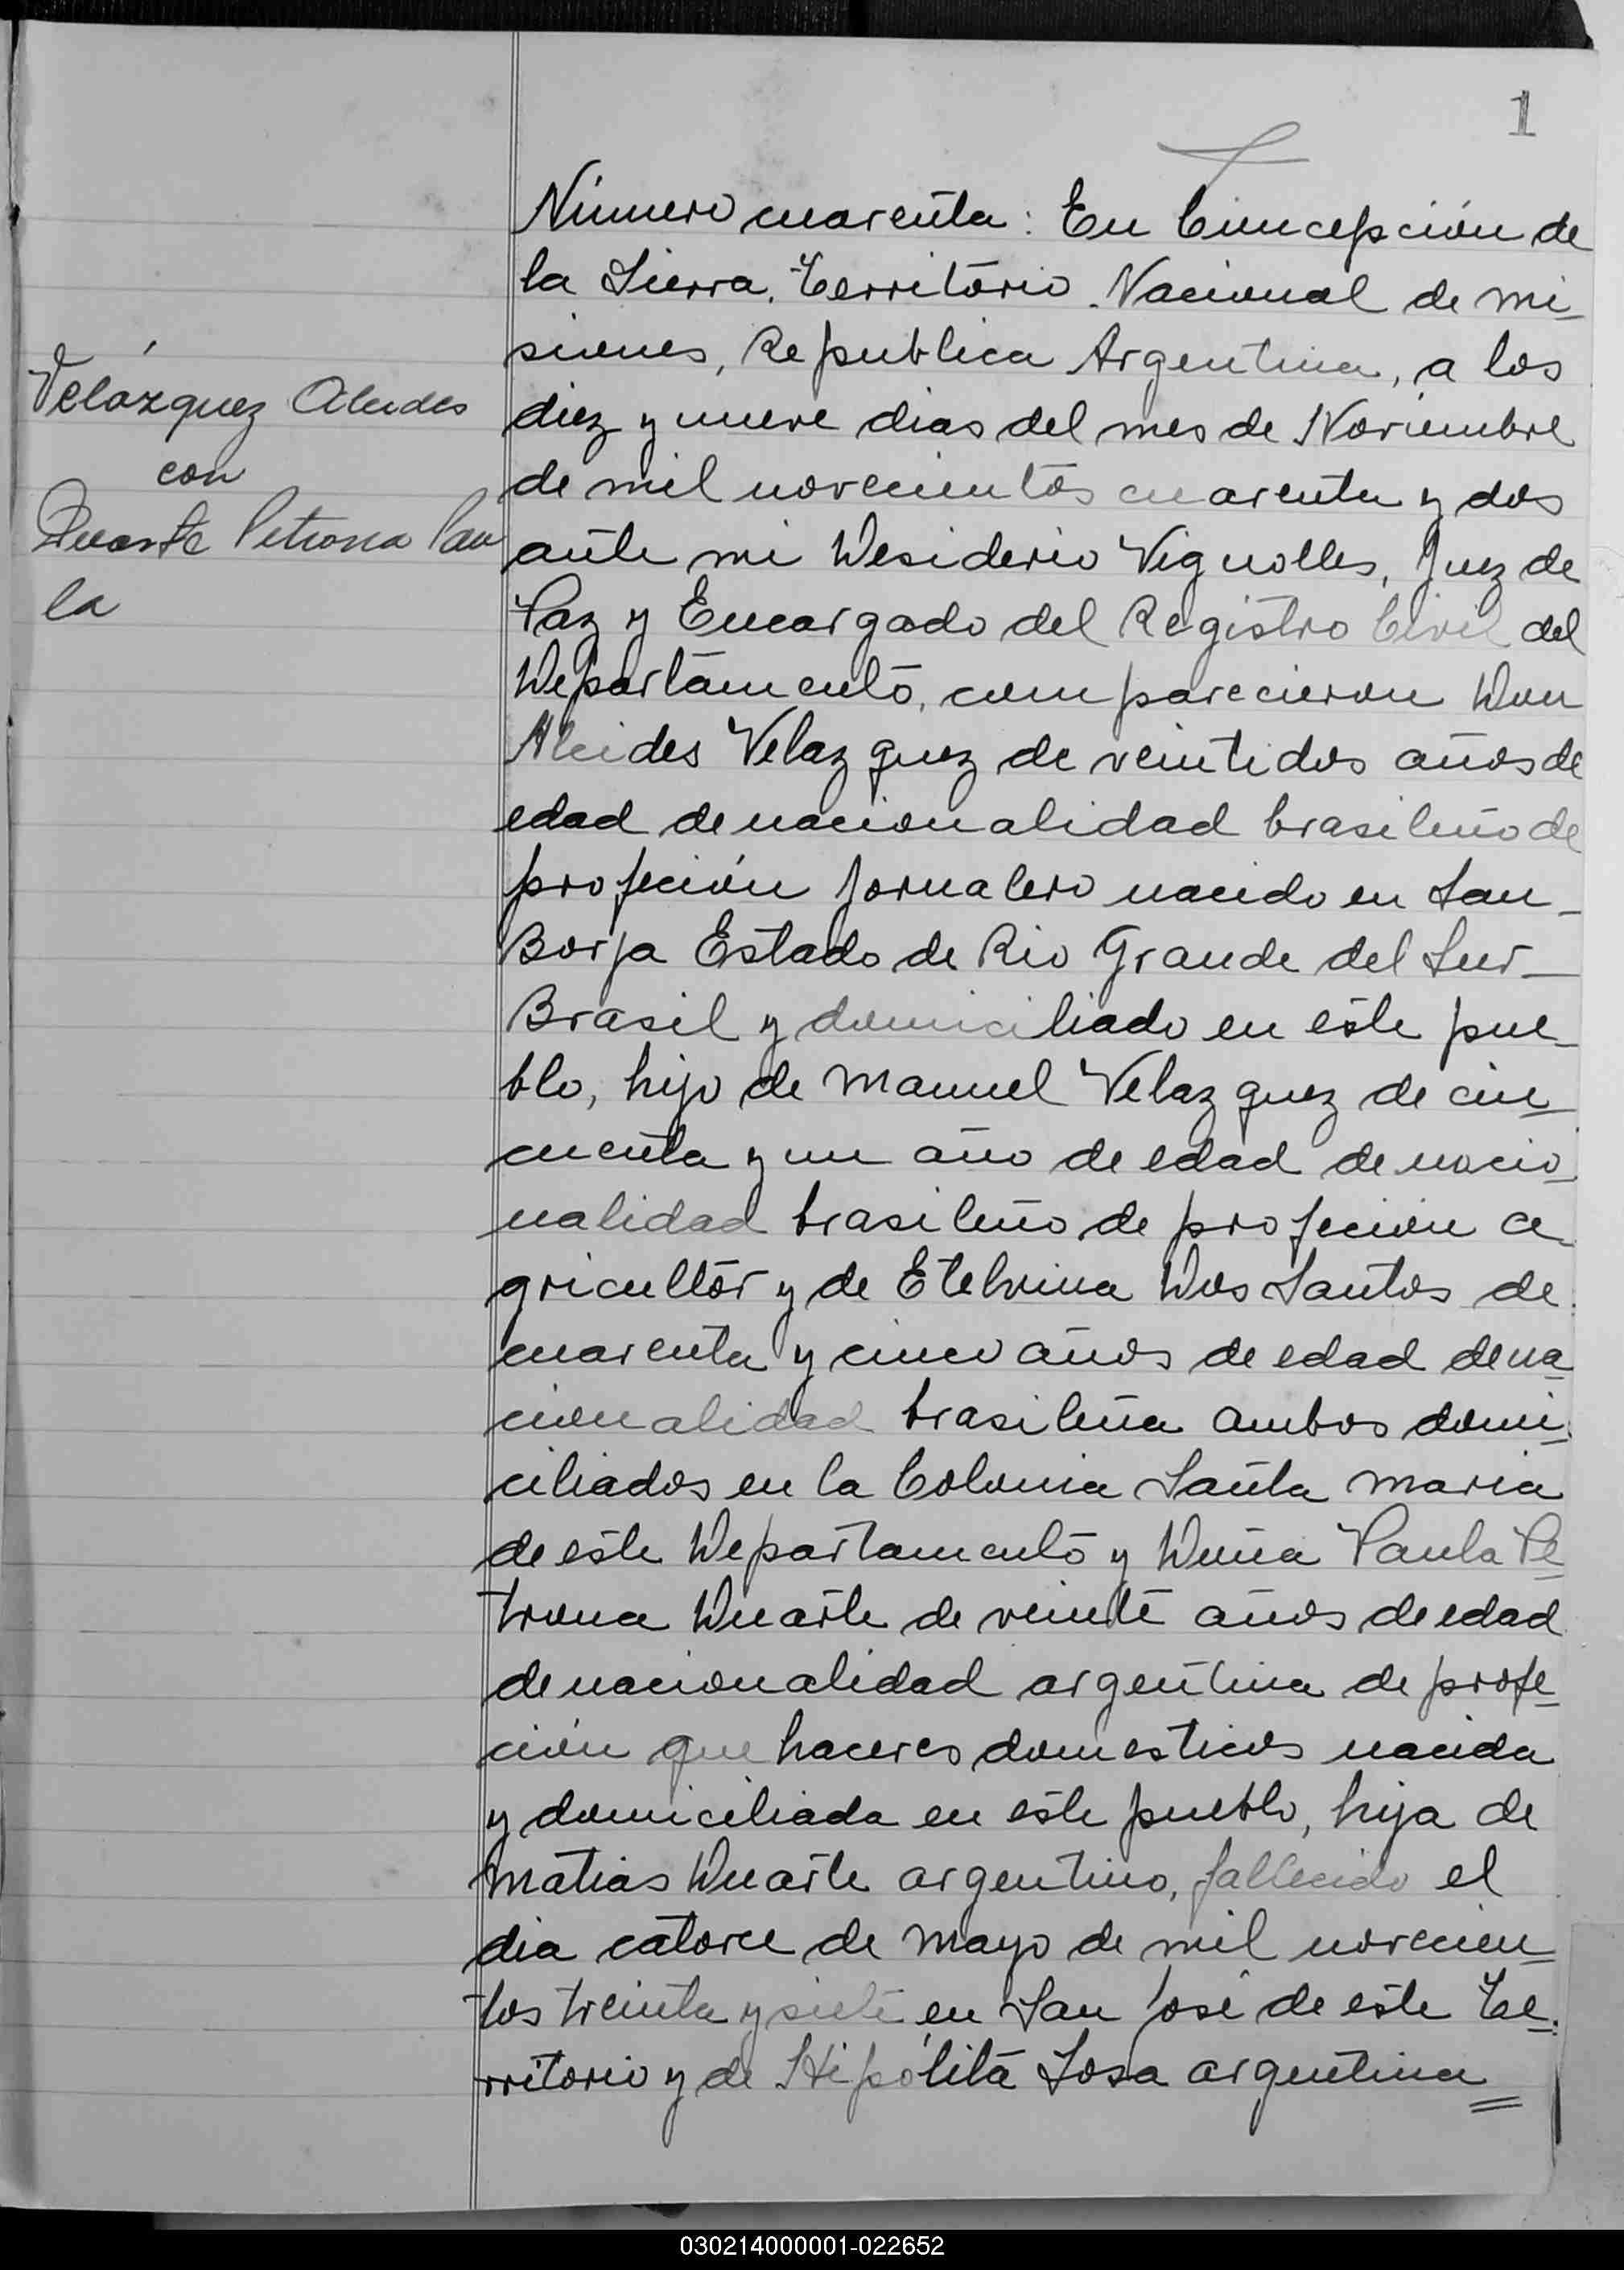 1
Número cuarenta: En Concepción de
la Sierra, Territorio Nacional de Mi-
siones, Republica Argentina, a los
diez y nueve dias del mes de Noviembre
de mil novecientos cuarenta y dos
ante mi Desiderio Vignolles, Juez de
Paz y Encargado del Registro Civil del
Departamento, comparecieron Don
Alcides Velazquez de veintidos años de
edad de nacionalidad brasileño de
profeción jornalero nacido en San
Borja Estado de Rio Grande del Sur
Brasil y domiciliado en este pue-
blo, hijo de Manuel Velazquez de cin-
cuenta y un año de edad de nacio-
nalidad brasileño de profeción a-
gricultor y de Etelvina Dos Santos de
cuarenta y cinco años de edad de na-
cionalidad brasileña ambos domi-
ciliados en la Colonia Santa Maria
de este Departamento y Doña Paula Pe-
trona Duarte de veinte años de edad
de nacionalidad argentina de profe-
ción que haceres domesticos nacida
y domiciliada en este pueblo, hija de
Matias Duarte argentino, fallecido el
dia catorce de Mayo de mil novecien-
tos treinta y siete en San José de este Te-
rritorio y de Hipólita Sosa argentina
Velázquez Alcides
con
Duarte Petrona Pau
la
030214000001-022652